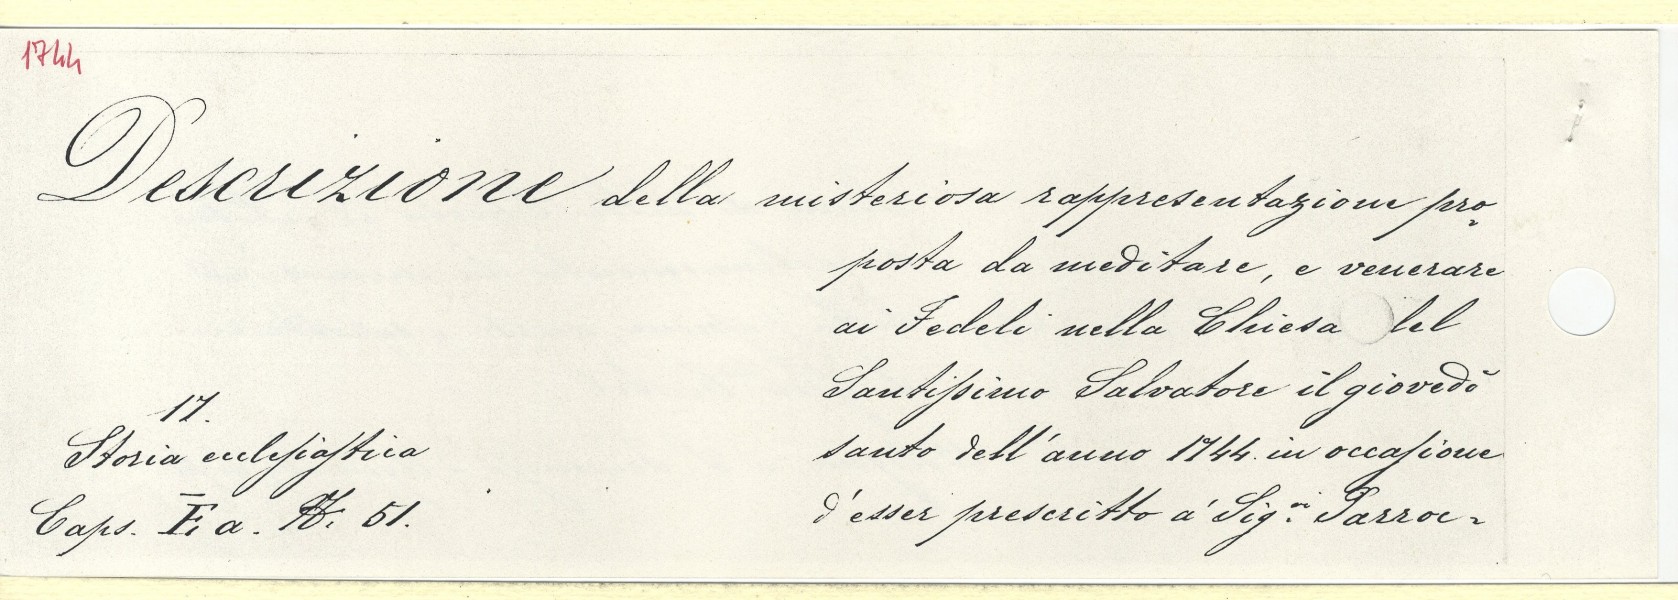 1744
Descrizione della misteriosa rappresentazione pro=
posta da meditare, e venerare
ai Fedeli nella Chiesa del
Santissimo Salvatore il giovedì
santo dell'anno 1744. in occasione
d'esser prescritto a' Sig.ri Parroc=
17.
Storia ecclesiastica
Caps. E, a. N. 51.